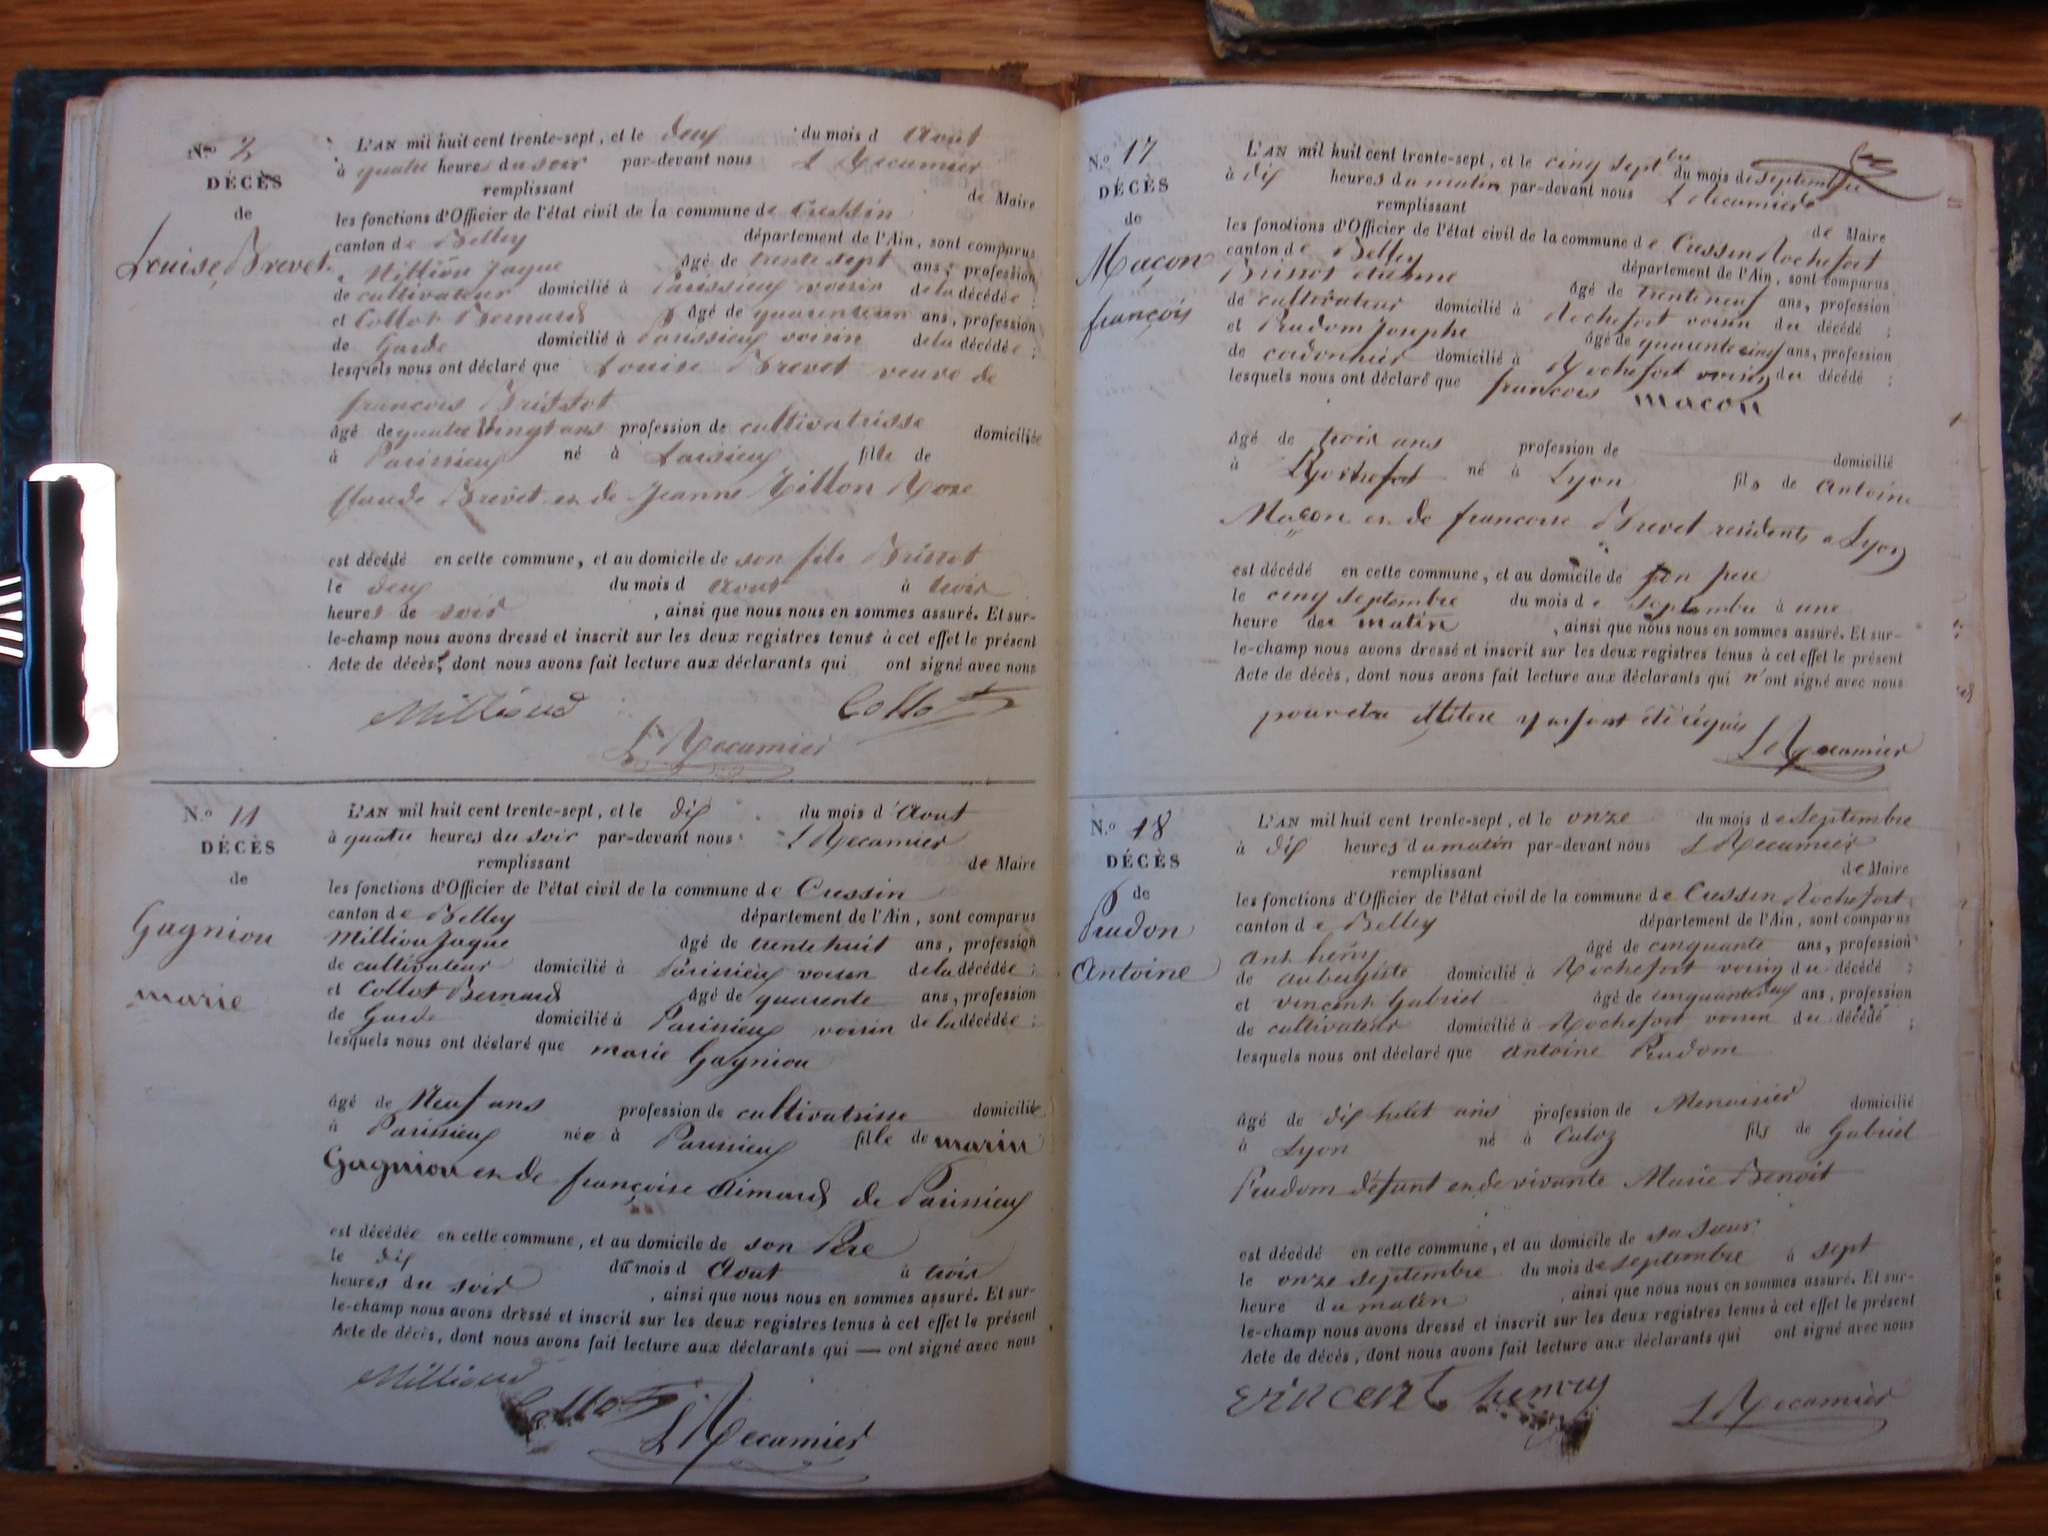 N.º 2
DÉCÈS
de
Louise Brevet
L'AN mil huit cent trente-sept, et le deux du mois d Aout
à quatre heures du soir par-devant nous L Recamier
remplissant de Maire
les fonctions d'Officier de l'état civil de la commune de Cressin
canton de Belley département de l'Ain, sont comparus
Million Jaque âgé de trente sept ans, profession
de cultivateur domicilié à Parissieux voisin de la décédée ;
et Collot Bernard âgé de quarente un ans, profession
de Garde domicilié à Parissieux voisin de la décédée ;
lesquels nous ont déclaré que Louise Brevet veuve de
francois Brissot
âgé de quatre vingt ans profession de cultivatrisse domiciliée
à Parissieux né à fille de
Claude Brevet et de Jeanne Millon Rose
est décédé en cette commune, et au domicile de son fils Brissot
le deux du mois d Aout à trois
heures de soir , ainsi que nous nous en sommes assuré. Et sur-
le-champ nous avons dressé et inscrit sur les deux registres tenus à cet effet le présent
Acte de décès, dont nous avons fait lecture aux déclarants qui ont signé avec nous
Milliond Collot
L Recamier
N.º 11
DÉCÈS
de
Gagniou
marie
L'AN mil huit cent trente-sept, et le dix du mois d'Aout
à quatre heures du soir par-devant nous L Recamier
remplissant de Maire
les fonctions d'Officier de l'état civil de la commune de Cressin
canton de Belley département de l'Ain, sont comparus
Million Jaque âgé de trente huit ans, profession
de cultivateur domicilié à Parissieux voisin de la décédée ;
et Collot Bernard âgé de quarente ans, profession
de Garde domicilié à Parissieux voisin de la décédée ;
lesquels nous ont déclaré que marie Gagniou
âgé de Neuf ans profession de cultivatrisse domiciliée
à Parissieux née à Parissieux fille de marin
Gagniou et de françoise Aimard de Parissieux
est décédée en cette commune, et au domicile de son Pere
le dix du mois d Aout à trois
heures du soir , ainsi que nous nous en sommes assuré. Et sur-
le-champ nous avons dressé et inscrit sur les deux registres tenus à cet effet le présent
Acte de décès, dont nous avons fait lecture aux déclarants qui — ont signé avec nous
Milliond
Collot
L Recamier
N.º 17
DÉCÈS
de
Maçon
françois
L'AN mil huit cent trente-sept, et le cinq septbre du mois de septembre
à dix heures du matin par-devant nous L Recamier
remplissant de Maire
les fonctions d'Officier de l'état civil de la commune de Cressin Rochefort
canton de Belley département de l'Ain, sont comparus
Brissot etienne âgé de trenteneuf ans, profession
de cultivateur domicilié à Rochefort voisin du décédé ;
et Prudom Josephe âgé de quarente cinq ans, profession
de cordonnier domicilié à Rochefort voisin du décédé ;
lesquels nous ont déclaré que francois macon
âgé de trois ans profession de domicilié
à Rochefort né à Lyon fils de Antoine
Macon et de francoise Brevet residents a Lyon
est décédé en cette commune, et au domicile de son pere
le cinq septembre du mois de septembre à une
heure de matin , ainsi que nous nous en sommes assuré. Et sur-
le-champ nous avons dressé et inscrit sur les deux registres tenus à cet effet le présent
Acte de décès, dont nous avons fait lecture aux déclarants qui n'ont signé avec nous
pour etre illitere
L Recamier
N.º 18
DÉCÈS
de
Prudon
Antoine
L'AN mil huit cent trente-sept, et le onze du mois de septembre
à dix heures du matin par-devant nous L Recamier
remplissant de Maire
les fonctions d'Officier de l'état civil de la commune de Cressin Rochefort
canton de Belley département de l'Ain, sont comparus
Ant henry âgé de cinquante ans, profession
de aubergiste domicilié à Rochefort voisin du décédé ;
et vincent Gabriel âgé de cinquante deux ans, profession
de cultivateur domicilié à Rochefort voisin du décédé ;
lesquels nous ont déclaré que Antoine Prudom
âgé de dix huit ans profession de Menoisier domicilié
à Lyon né à Culoz fils de Gabriel
Prudom défunt et de vivante Marie Benoit
est décédé en cette commune, et au domicile de sa sœur
le onze septembre du mois de septembre à sept
heure du matin , ainsi que nous nous en sommes assuré. Et sur-
le-champ nous avons dressé et inscrit sur les deux registres tenus à cet effet le présent
Acte de décès, dont nous avons fait lecture aux déclarants qui ont signé avec nous
vincent henry
L Recamier